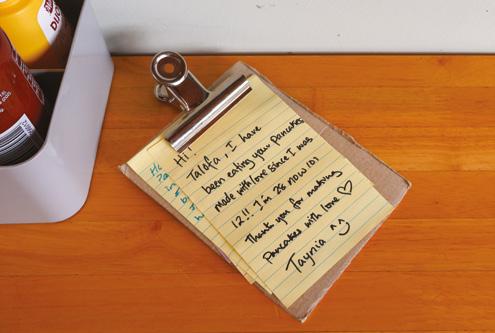 Hi!
Talofa, I have
been eating your pancakes
made with love since I was
12!! I'm 28 now lol
Thank you for making
pancakes with love ♡
Taynia ^^